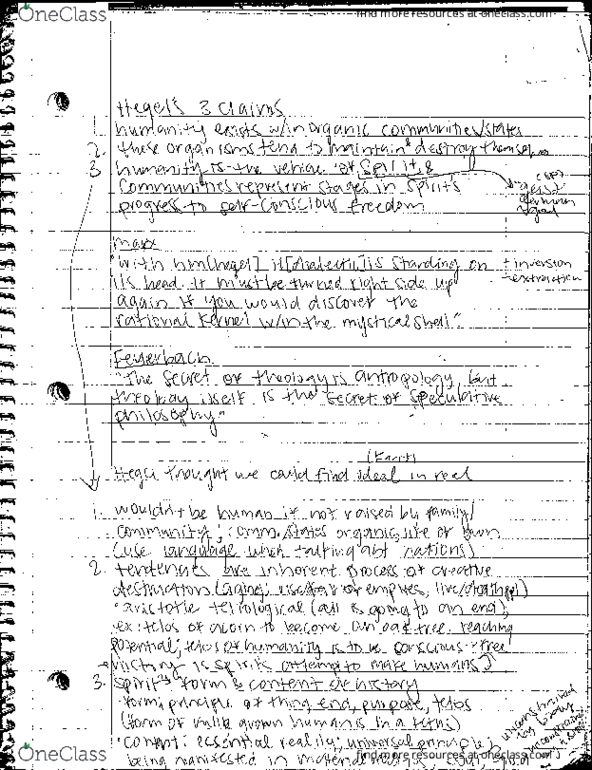 OneClass
find more resources at oneclass.com
Hegel's 3 Claims
1. humanity exists w/in organic communities/states
2. these organisms tend to maintain & destroy themselves
3. humanity is the vehicle of Spirit, &
communities represent stages in spirit's
progress to self-conscious freedom
geist
Marx
"With him [Hegel] it [dialectic] is standing on
its head. It must be turned right side up
again if you would discover the
rational kernel w/in the mystical shell".
+ inversion
→ extraction
Feuerbach
"The secret of theology is antropology, but
theology itself is the secret of speculative
philosophy"
Hegel thought we could find ideal in real
1. wouldn't be human if not raised by family/
community; comm/states organic, life of own
(use language when talking abt nations)
2. tendencies are inherent process of creative
destruction (aging, rise/fall of empires, live/
· aristotle telological (all is going to an end);
ex: telos of acorn to become an oak tree. reaching
potential; telos of humanity is to be conscious + free
history is spirit's attempt to make humans
3. Spirit is form & content of history
· form: principle of thing, end, purpose, telos
(form of
grown human is in a fetus)
· content: essential reality; universal principle
being manifested in
OneClass
find more resources at oneclass.com